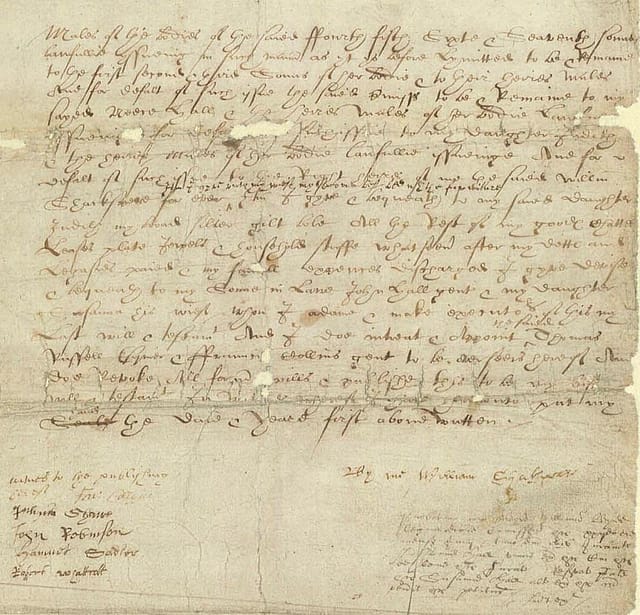 Males of the bodies of the saied ffourth fifth Sixte & Seaventh sonnes
lawfullie yssueing in such manner as yt ys before Lymitted to be & Remaine
to the first second & third Sonns of her bodie & to their heires Males
And for defalt of such issue the saied premisses to be & Remaine to my
sayed Neece Hall & the heires Males of her bodie Law
yssueing for defa such issue to my daughter Judith
& the heires Males of her bodie lawfullie yssueinge And for
defalt of such issue to the Right heires of me the saied willm
Itm I gyve unto my wief my second best bed with the furniture
Shackspere for ever Itm I gyve & bequeath to my saied daughter
Judith my broad silver gilt bole All the Rest of my goodes Chattels
Leases plate Jewels & household stuffe whatsoever after my dettes and
Legasies paied & my funerall expences discharged I gyve devise
& bequeath to my Sonne in Lawe John Hall gent & my daughter
Susanna his wief whom I ordaine & make executors of this my
the saied
Last will & testamt And I doe intreat & Appoint Thomas
Russell Esquier & ffraunces Collins gent to be overseers hereof And
doe Revoke All former wills & publishe this to be my last
will & testamt In witnes whereof I have hereunto put my
hand
Seale the Daie & Yeare first above written.
witnes to the publishing
hereof Fra: Collyns
Julius Shawe
John Robinson
Hamnet Sadler
Robert whattcott
By me William Shakspeare